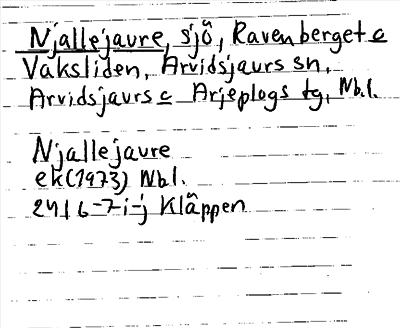 Njallejaure, sjö, Ravenberget c
Vaksliden, Arvidsjaurs sn,
Arvidsjaurs c Arjeplogs tg, Nb.l.
Njallejaure
ek (1973) Nbl.
24 I 6-7i-j Kläppen